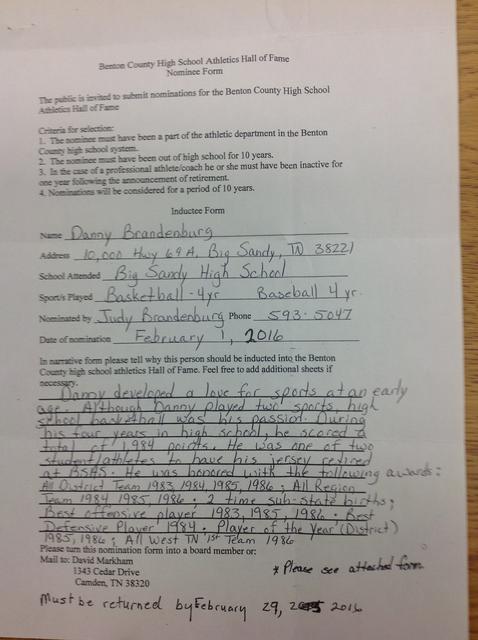 Benton County High School Athletics Hall of Fame
Nominee Form
The public is invited to submit nominations for the Benton County High School
Athletics Hall of Fame
Criteria for selection:
1. The nominee must have been a part of the athletic department in the Benton
County high school system.
2. The nominee must have been out of high school for 10 years.
3. In the case of a professional athlete/coach he or she must have been inactive for
one year following the announcement of retirement.
4. Nominations will be considered for a period of 10 years.
Inductee Form
Name Danny Brandenburg
Address 10,000 Hwy 69A, Big Sandy, TN 38221
School Attended Big Sandy High School
Sport/s Played Basketball - 4yr Baseball 4 yr.
Nominated by Judy Brandenburg Phone 593-5047
Date of nomination February 1, 2016
In narrative form please tell why this person should be inducted into the Benton
County high school athletics Hall of Fame. Feel free to add additional sheets if
necessary.
Danny developed a love for sports at an early
age. Although Danny played two sports, high
school basketball was his passion. During
his four years in high school, he scored a
total of 1984 points. He was one of two
student/athletes to have his jersey retired
at BSHS. He was honored with the following awards:
All District Team 1983, 1984, 1985, 1986; All Region
Team 1984, 1985, 1986; 2 time sub-state births;
Best offensive player 1983, 1985, 1986. Best
Defensive Player 1984. Player of the Year (District)
1985, 1986; All West TN 1st Team 1986
Please turn this nomination form into a board member or:
Mail to: David Markham
1343 Cedar Drive
Camden, TN 38320
* Please see attached form
Must be returned by February 29, 2016